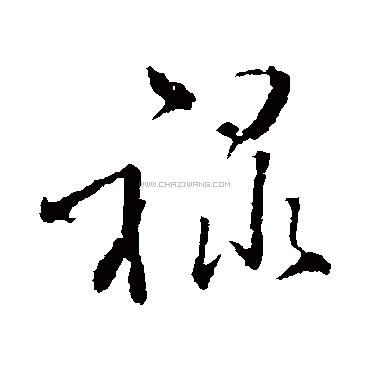 禄
WWW.CHAZIWANG.COM